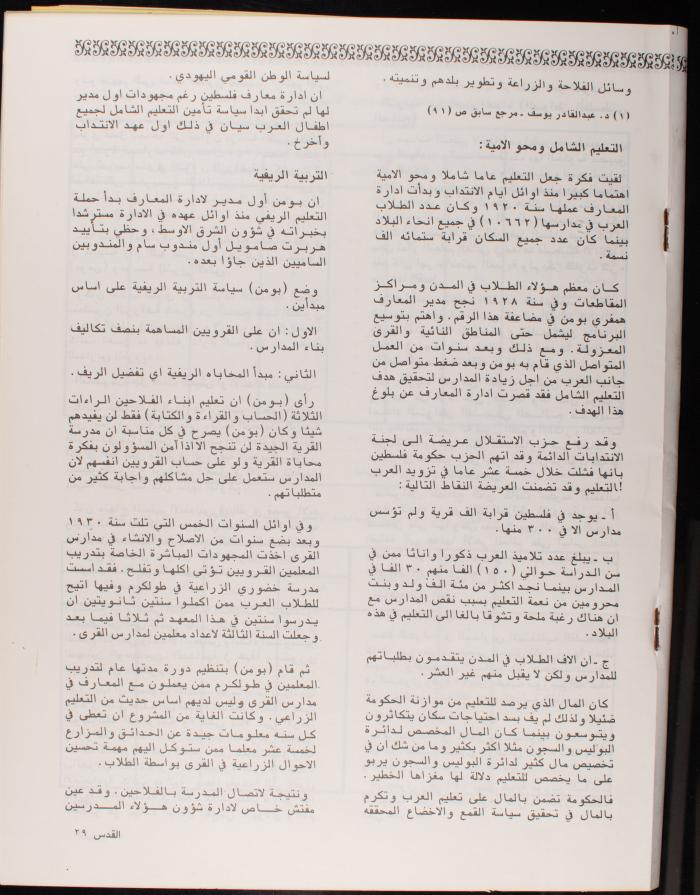 وسائل الفلاحة والزراعة وتطوير بلدهم وتنميته .
(١) د. عبدالقادر يوسف ـ مرجع سابق ص (٩١)
التعليم الشامل ومحو الامية :
لقيت فكرة جعل التعليم عاما شاملا ومحو الامية
اهتماما كبيرا منذ اوائل ايام الانتداب وبدأت ادارة
المعارف عملها سنة ١٩٢٠ وكان عدد الطلاب
العرب في مدارسها (١٠٦٦٢) في جميع انحاء البلاد
بينما كان عدد جميع السكان قرابة ستمائه الف
نسمة .
كـان معظم هـؤلاء الطلاب في المـدن ومـراكـز
المقاطعات وفي سنة ١٩٢٨ نجح مدير المعارف
همفري بومن في مضاعفة هذا الرقم . واهتم بتوسيع
البرنامج ليشمل حتى المناطق النائية والقرى
المعـزولـة . ومـع ذلـك وبـعـد سنـوات من العمل
المتواصل الذي قام به بومن وبعد ضغط متواصل من
جانب العرب من اجل زيادة المدارس لتحقيق هدف
التعليم الشامل فقد قصرت ادارة المعارف عن بلوغ
هذا الهدف .
وقـد رفـع حزب الاستقـلال عريضـة الـى لجنة
الانتدابات الدائمة وقد اتهم الحزب حكومة فلسطين
بأنها فشلت خلال خمسة عشر عاما في تزويد العرب
!التعليم وقد تضمنت العريضة النقاط التالية :
أ ـ يوجد في فلسطين قرابة الف قرية ولم تؤسس
مدارس الا في ٣٠٠ منها .
ب ـ يبلغ عدد تلاميذ العرب ذكورا واناثا ممن في
سن الدراسة حوالي (١٥٠) الفا منهم ٣٠ الفا في
المدارس بينما نجد اكثر من مئة الف ولد وبنت
محرومين من نعمة التعليم بسبب نقص المدارس مع
ان هناك رغبة ملحة وتشوقا بالغا الى التعليم في هذه
البلاد .
ج ـ ان الاف الطلاب في المدن يتقدمون بطلباتهم
للمدارس ولكن لا يقبل منهم غير العشر .
كان المال الذي يرصد للتعليم من موازنة الحكومة
ضئيلا ولذلك لم يف بسد احتياجات سكان يتكاثرون
ويتـوسعـون بينمـا كـان المال المخصـص لـدائـرة
البوليس والسجون مثلا اكثر بكثير وما من شك ان في
تخصيص مال كثير لدائرة البوليس والسجون يربو
على ما يخصص للتعليم دلالة لها مغزاها الخطير .
فالحكومة تضمن بالمال على تعليم العرب وتكرم
بالمال في تحقيق سياسة القمع والاخضاع المحققه
لسياسة الوطن القومي اليهودي .
ان ادارة معارف فلسطين رغم مجهودات اول مدير
لها لم تحقق ابدا سياسة تأمين التعليم الشامل لجميع
اطفـال العـرب سيـان في ذلـك اول عهـد الانتـداب
وآخرخ .
التربية الريفية
ان بـومن أول مديـر لادارة المعارف بـدأ حملـة
التعليم الريفي منذ اوائل عهده في الادارة مسترشدا
بخبراتـه في شؤون الشـرق الاوسـط ، وحظي بتـأييـد
هـربـرت صامـويـل أول مندوب سـام والمنـدوبين
الساميين الذين جاؤا بعده .
وضع (بومن) سياسة التربية الريفية على اساس
مبدأين .
الاول : ان على القرويين المساهمة بنصف تكاليف
بناء المدارس .
الثاني : مبدأ المحاباه الريفية اي تفضيل الريف .
رأي (بـومن) ان تعليم ابنـاء الفـلاحين الـراءات
الثلاثة (الحساب والقراءة والكتابة) فقط لن يفيدهم
شيئا وكان (بومن) يصرح في كل مناسبة ان مدرسة
القرية الجيدة لن تنجح الااذا آمن المسؤولون بفكرة
محاباة القرية ولو على حساب القرويين انفسهم لان
المدارس ستعمل على حل مشاكلهم واجابة كثير من
متطلباتهم .
وفي اوائل السنوات الخمس التي تلت سنة ١٩٣٠
وبعد بضع سنوات من الاصلاح والانشاء في مدارس
القرى اخذت المجهودات المباشرة الخاصة بتدريب
المعلمين القرويين تؤتي اكلها وتفلح . فقد اسست
مدرسة خضوري الزراعية في طولكرم وفيها اتيح
للطـلاب العـرب ممن اكملـوا سنتين ثـانـويتين ان
يدرسـوا سنتين في هـذا المعهـد ثم ثـلاثـا فيما بعـد
وجعلت السنة الثالثة لاعداد معلمين لمدارس القرى .
ثم قام (بومن) بتنظيم دورة مدتها عام لتدريب
المعلمين في طولكرم ممن يعملون مع المعارف في
مدارس القرى وليس لديهم اساس حديث من التعليم
الزراعي . وكانت الغاية من المشروع ان تعطى في
كل سنه معلومات جيدة عن الحدائق والمزارع
لخمسة عشر معلما ممن ستوكل اليهم مهمة تحسين
الاحوال الزراعية في القرى بواسطة الطلاب .
ونتيجة لاتصال المدرسة بالفلاحين . وقـد عين
مفتش خـاص لادارة شؤون هـؤلاء المـدرسين
القدس ٢٩